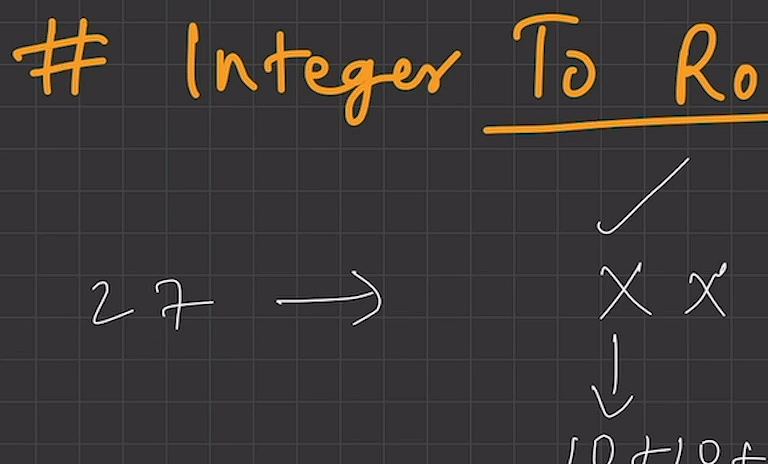 # Integer To Ro
27 → X X
↓
10+10+